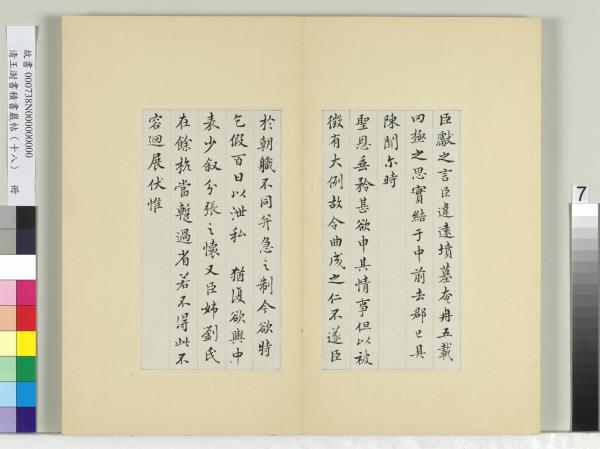 臣獻之言臣違遠墳墓奄冉五載
罔極之思實結于中前去郡已具
陳聞尓時
聖恩垂矜甚欲申其情事但以被
徵有大例故令曲成之仁不遂臣
於朝職不同并急之制今欲特
乞假百日以泄私 猶復欲與中
表少叙分張之懷又臣姊劉氏
在餘杭當蹔過省若不得此不
容迴展伏惟
故書 000738N000000000 冊
清王澍書積書巖帖(十八)
7